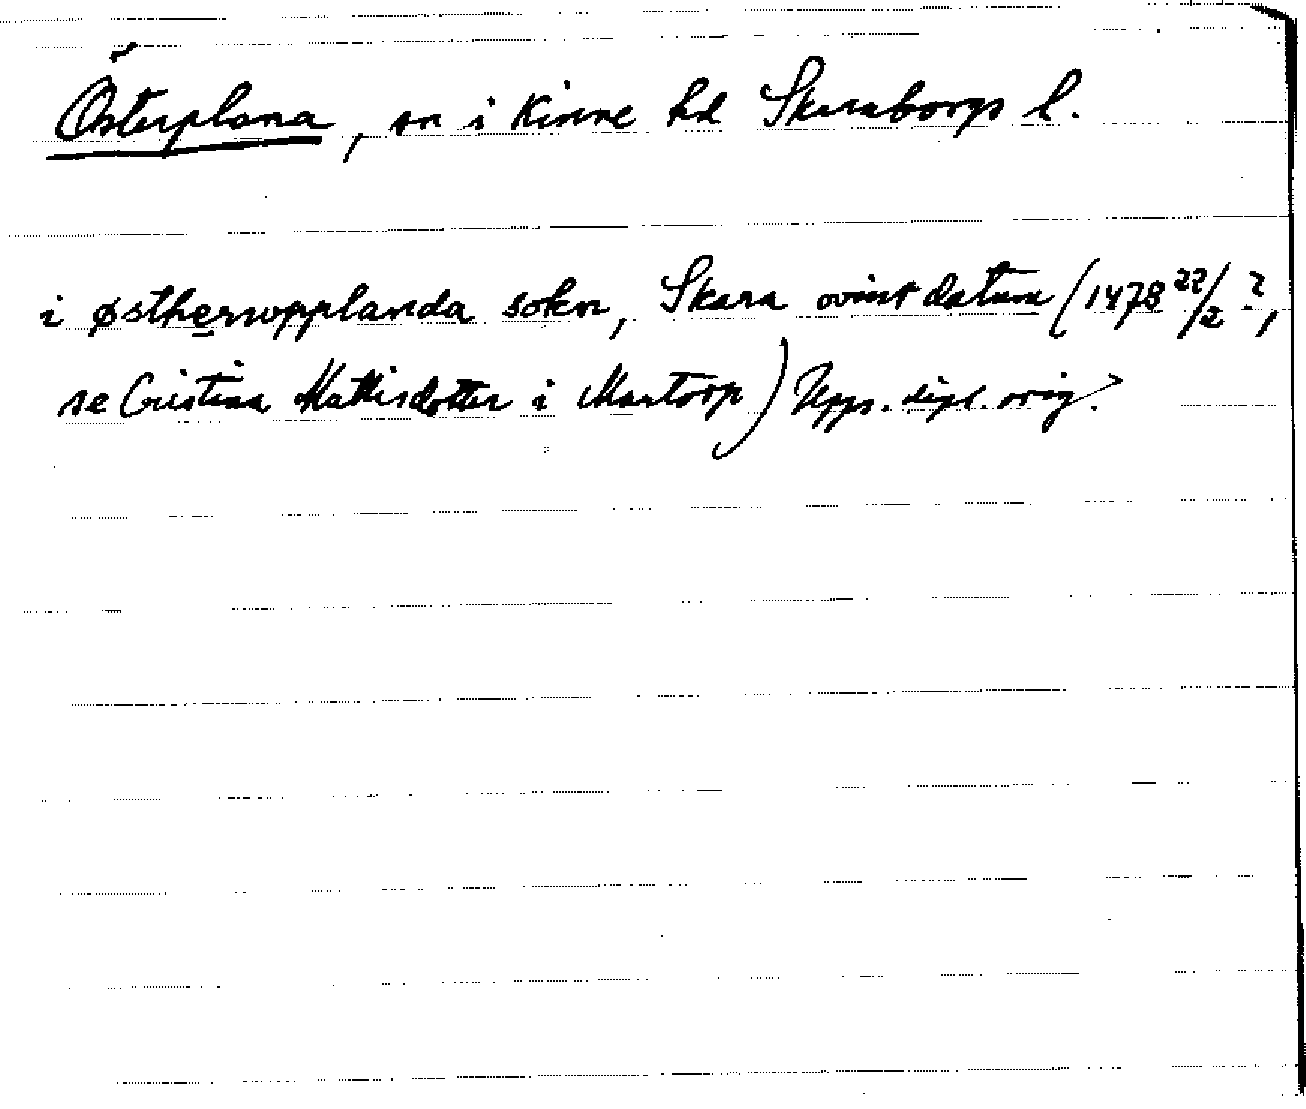 Österplana, sn i Kinne hd Skaraborgs l.
i østhernopplanda sokn, Skara ovisst datum (1478 22/2 ?,
se Cristina Mattisdotter i Martorp) Upps. dipl. orig.